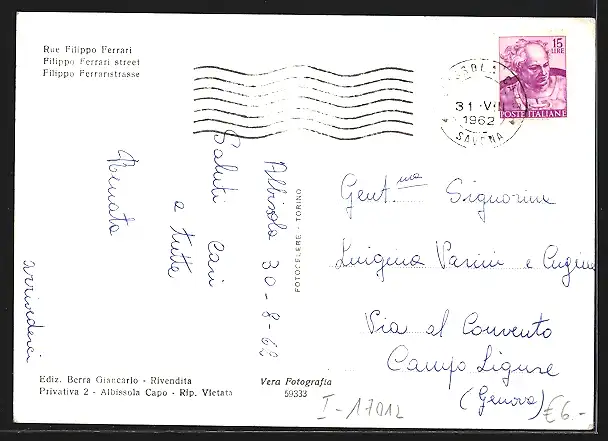 Rue Filippo Ferrari
Filippo Ferrari street
Filippo Ferraristrasse
31 VIII
1962
SAVONA
15
LIRE
POSTE ITALIANE
Albisola 30-8-62
Saluti cari
a tutte
Renata
arrivederci
FOTOCELERE - TORINO
Gent.ma Signorine
Luigina Parini e Cugine
Via al Convento
Campo Ligure
(Genova)
Ediz. Berra Giancarlo - Rivendita
Privativa 2 - Albissola Capo - Rip. Vietata
Vera Fotografia
59333
I-17012
€6.-